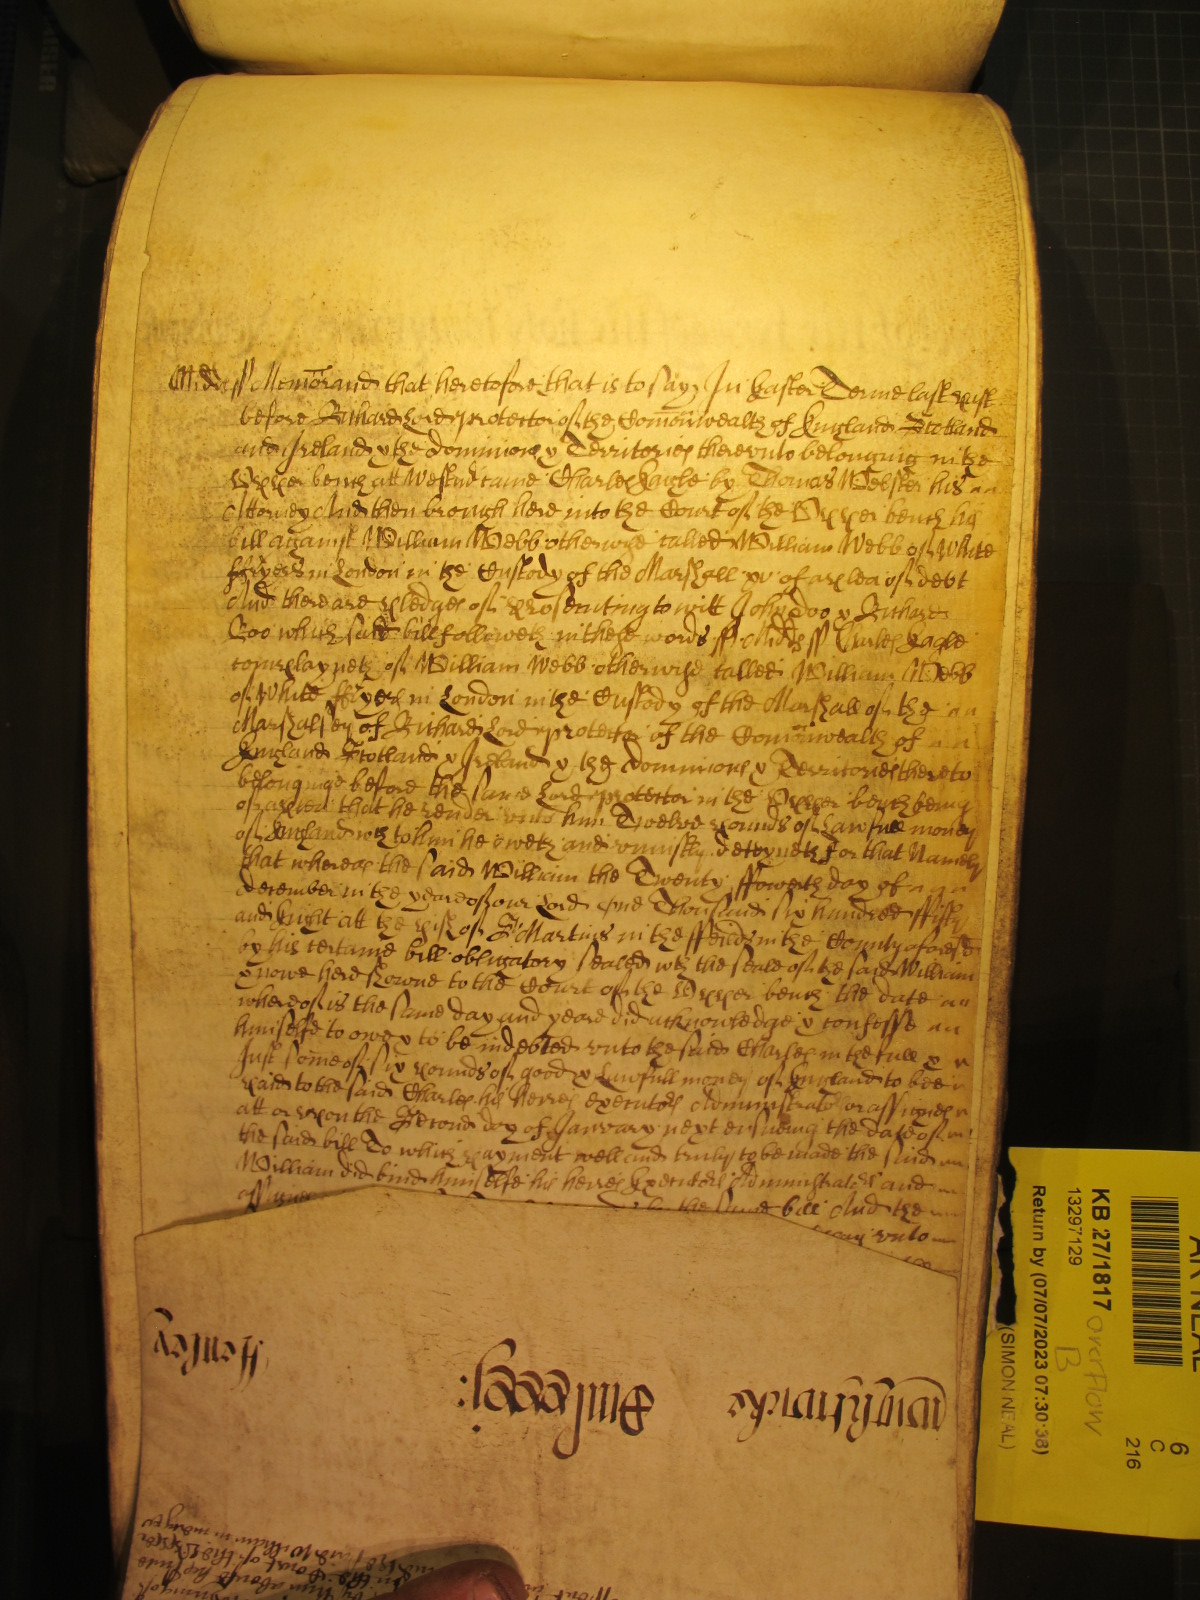 Midds ss Memorand that heretofore that is to say In Easter Terme last past
before Richard Lord protector of the Comonwealth of England Scotland
and Ireland & the dominions & Territories thereunto belonging in the
Upper bench att Westmr came Charles Eagle by Thomas Webster his
Attorney And then brough here into the Court of the Upper bench his
bill against William Webb otherwise called William Webb of White
ffryers in London in the Custody of the Marshall &c of a plea of debt
And there are pledges of prosecuting to witt John Doo & Richard
Roo which said bill followeth in these words ss Midds ss Charles Eagle
complayneth of William Webb otherwise called William Webb
of White ffryers in London in the Custody of the Marshall of the
Marshalsey of Richard Lord protector of the Comonwealth of
England Scotland & Ireland & the dominions & Territories thereto
belonginge before the same Lord protector in the Upper bench being
of a plea that he render unto him Twelve pounds of Lawfull money
of England wch to him he oweth and uniustly deteyneth for that Namely
that whereas the said William the Twenty ffowerth day of
december in the yeare of our Lord one Thousand six hundred ffifty
and Eight att the pish of St Martins in the ffeilds in the County aforesd
by his certaine bill obligatory sealed wth the seale of the said William
& nowe here showne to the Court of the Upper bench the date
whereof is the same day and yeare did acknowledge & confesse
himselfe to owe & to be indebted unto the said Charles in the full &
Just some of six pounds of good & Lawfull money of England to bee
paid to the said Charles his heires executors Administrators or assignes
att or upon the Second day of January next ensueing the date of
the said bill To which payment well and truly to be made the said
William did bind himselfe his heires Executors Administrators and
the same bill And the
unto
Wightwicke
Henley
AR NEAL
KB 27/1817 overflow
B
13297129
Return by (07/07/2023 07:30:38)
(SIMON NEAL)
6
C
216